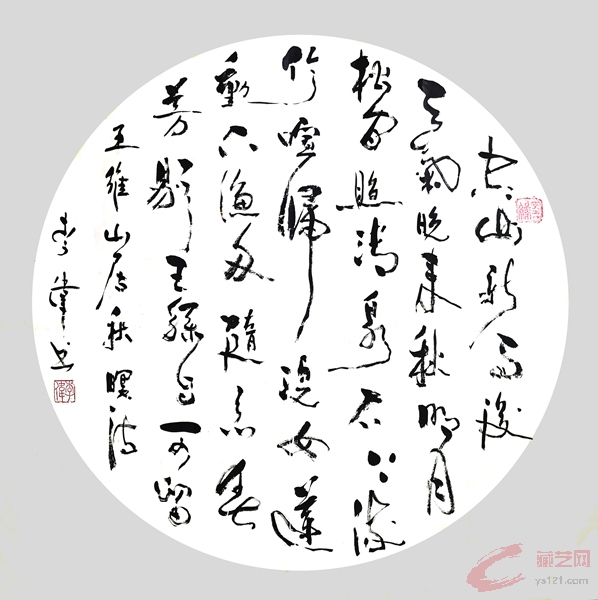 空山新雨後
天氣晚來秋明月
松間照清泉石上流
竹喧歸浣女蓮
動下漁舟隨意春
芳歇王孫自可留
王維山居秋暝詩
李書
藏艺网
ya121.com